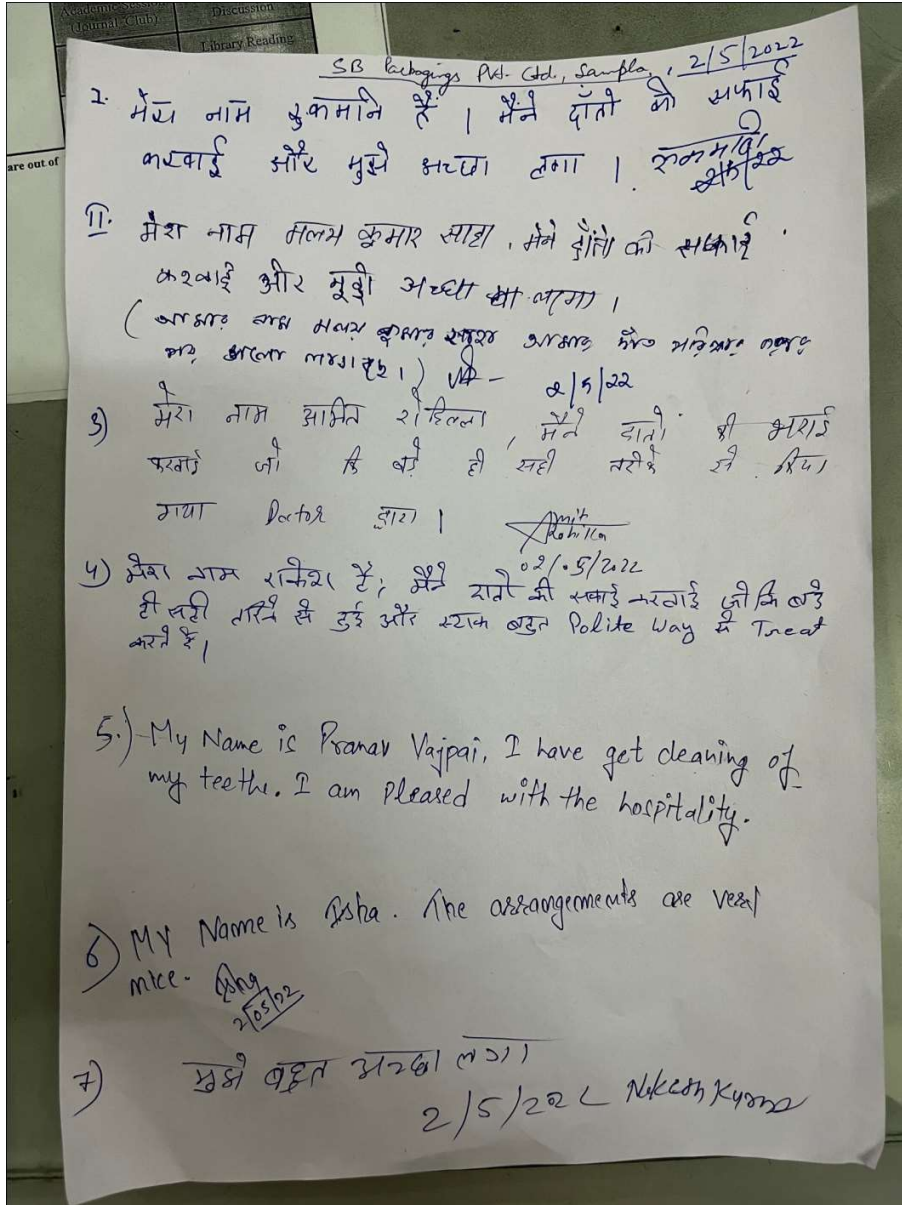 Academic Session
(Journal Club)
Discussion
Library Reading
are out of
SB Packagings Pvt. Ltd., Sampla, 2/5/2022
I. मेरा नाम रुकमनि हैं । मैंने दाँतो की सफाई
करवाई और मुझे अच्छा लगा ।
II. मेरा नाम मलय कुमार साहा, मेने दाँतो की सफाई
करवाई और मुझे अच्छा लगा ।
(আমার নাম মলয় কুমার সাহা আমার দাঁত পরিষ্কার
ভালো লেগেছে।)
2/5/22
3) मेरा नाम अमित रोहिल्ला, मैंने दातों की भराई
करवाई जो कि बड़े ही सही तरीके से किया
गया Doctor द्वारा ।
Amit
Rohilla
02/05/2022
4) मेरा नाम राकेश है, मैंने दातो की सफाई करवाई जो कि बड़े
ही सही तरिके से हुई और स्टाफ बहुत Polite Way से Treat
करते हैं।
5.) My Name is Pranav Vajpai, I have get cleaning of
my teeth. I am Pleased with the hospitality.
6) MY Name is Isha. The arrangements are very
nice. Isha
2/05/22
7) मुझे बहुत अच्छा लगा
2/5/202